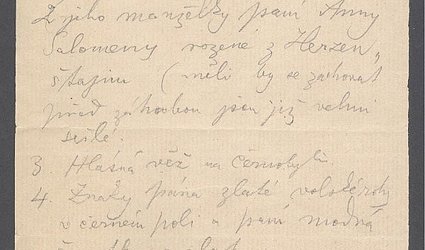 z jeho manželky paní Anny
Salomeny rozené z Herzen„
štajnu (měli by se zachovat
před záhubou jsou již velmi
sešlé.
3. Hlásná věž na Černobylu.
4. Znaky pána zlaté volské rohy
v černém poli a paní modrá